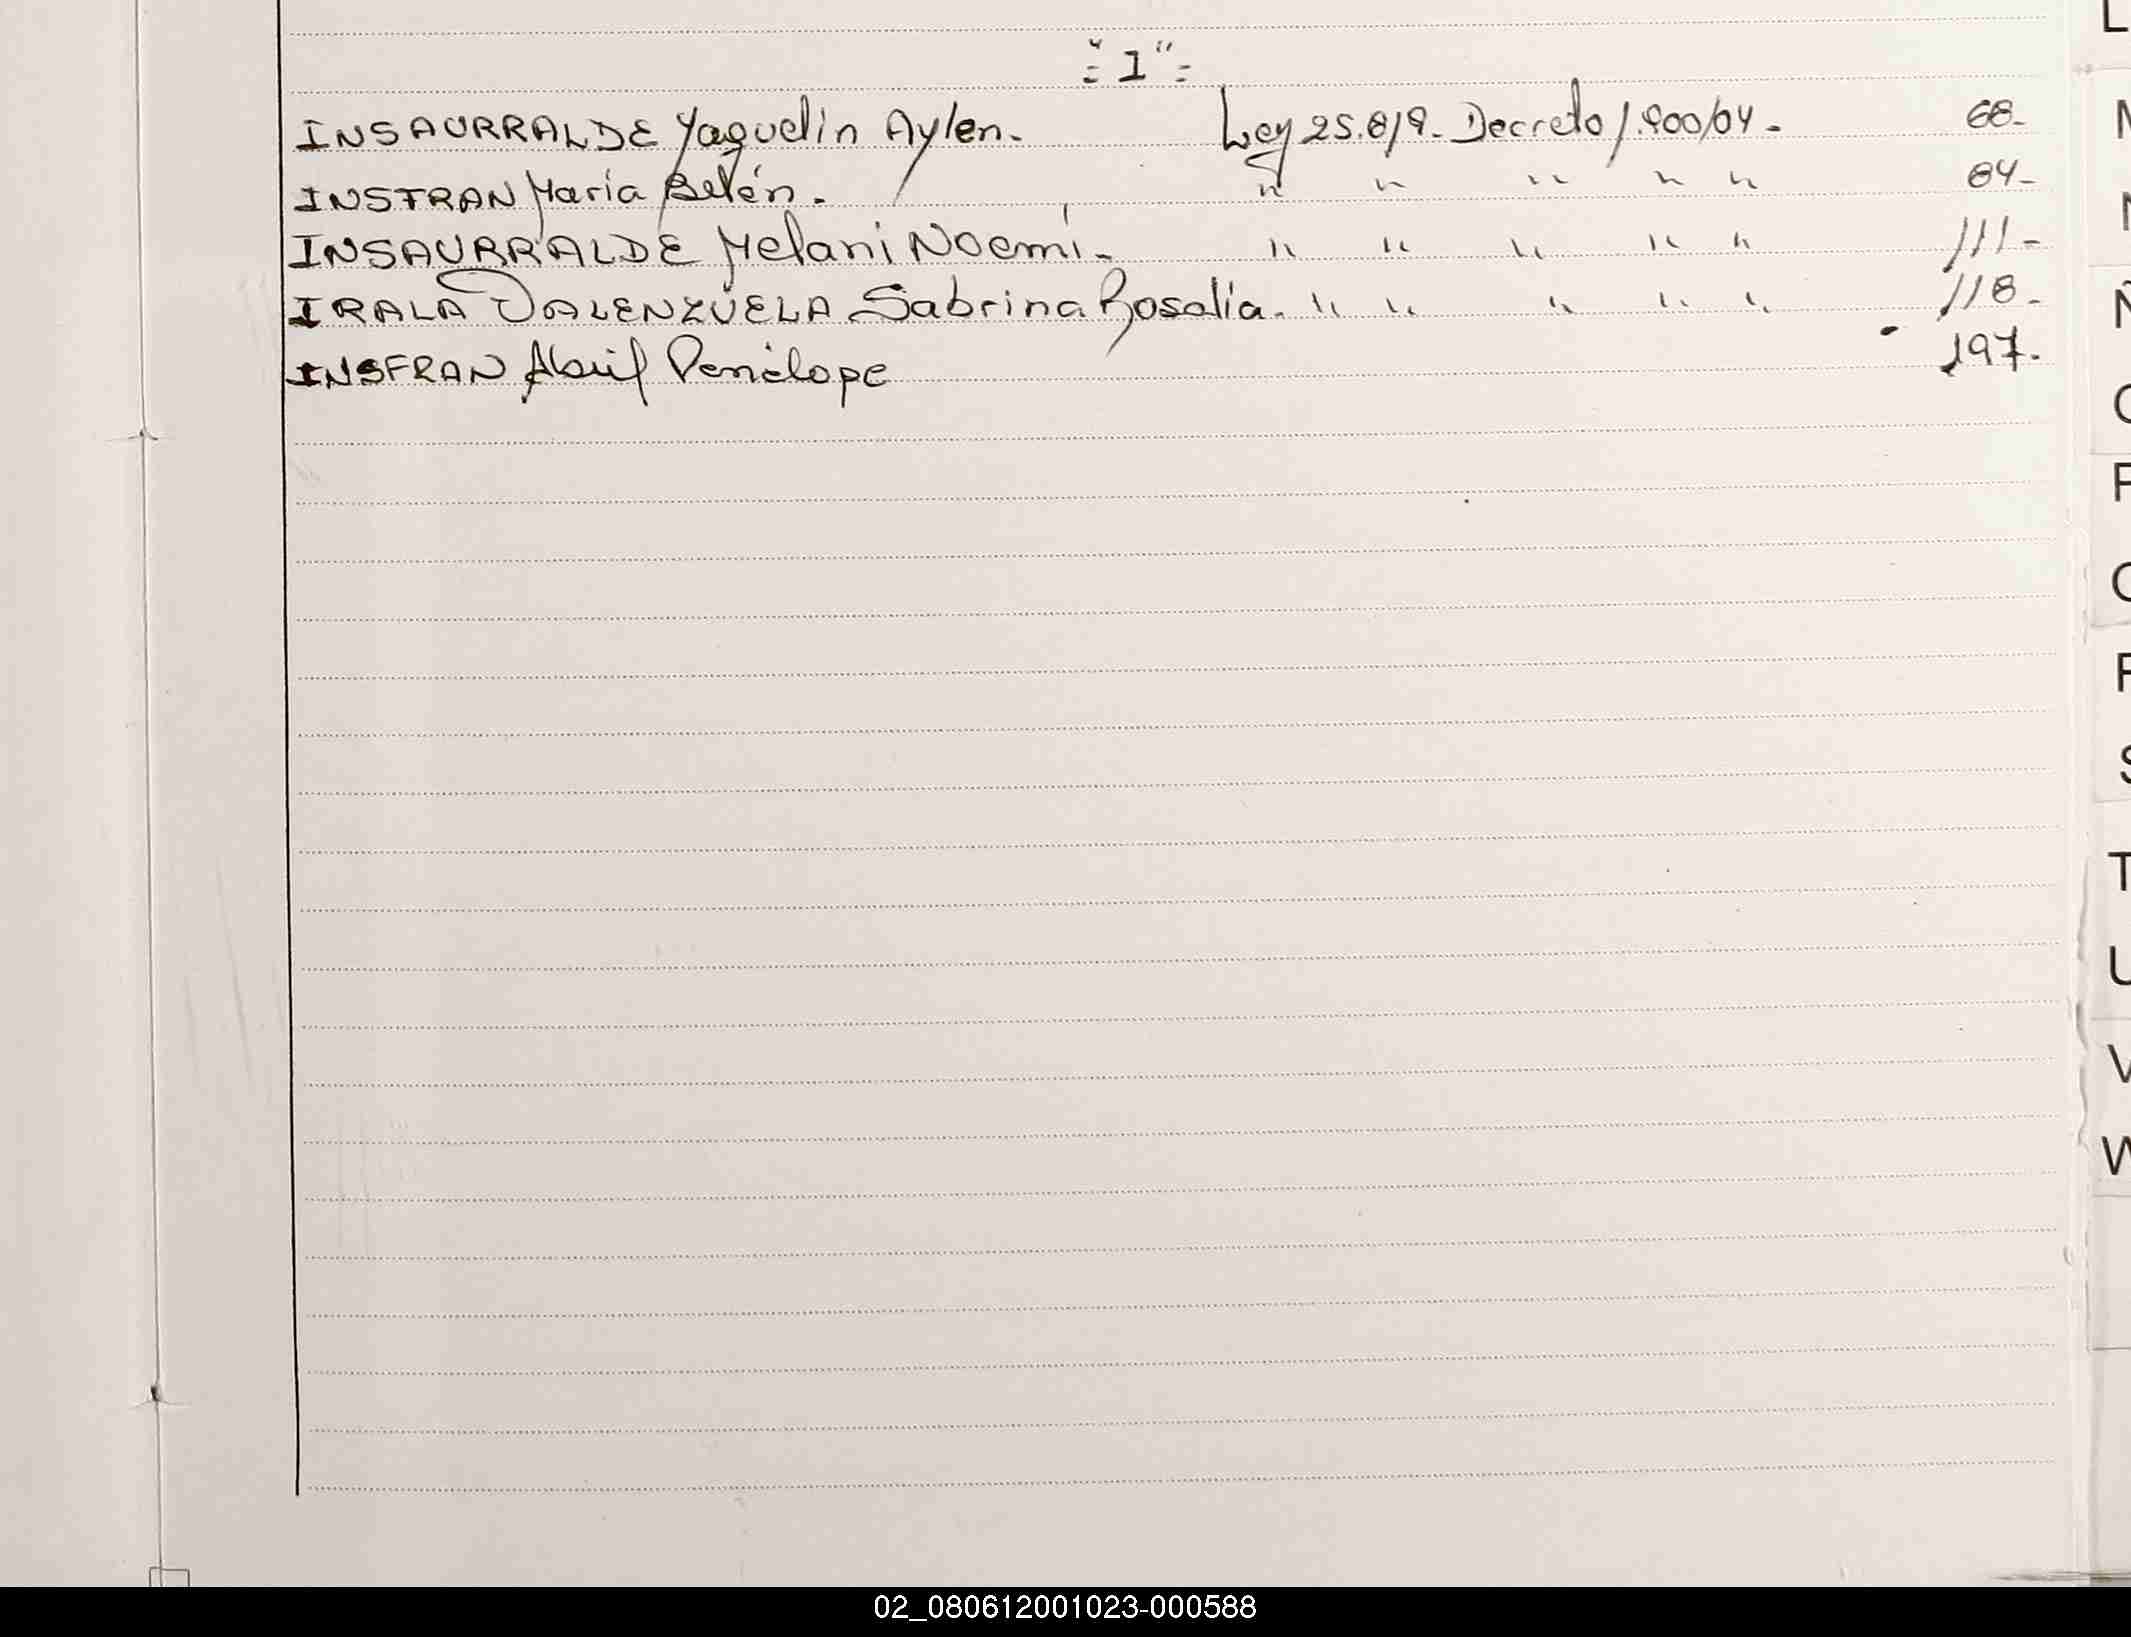 ="I"=
INSAURRALDE Yaquelin Aylen. Ley 25.819. Decreto 1.900/04. 68-
INSTRAN María Belén. " " " " " 84-
INSAURRALDE Melani Noemí. " " " " " 111-
IRALA VALENZUELA Sabrina Rosalía. " " " " " 118-
INSFRAN Penélope 197.
L
Ñ
T
U
V
W
02_080612001023-000588